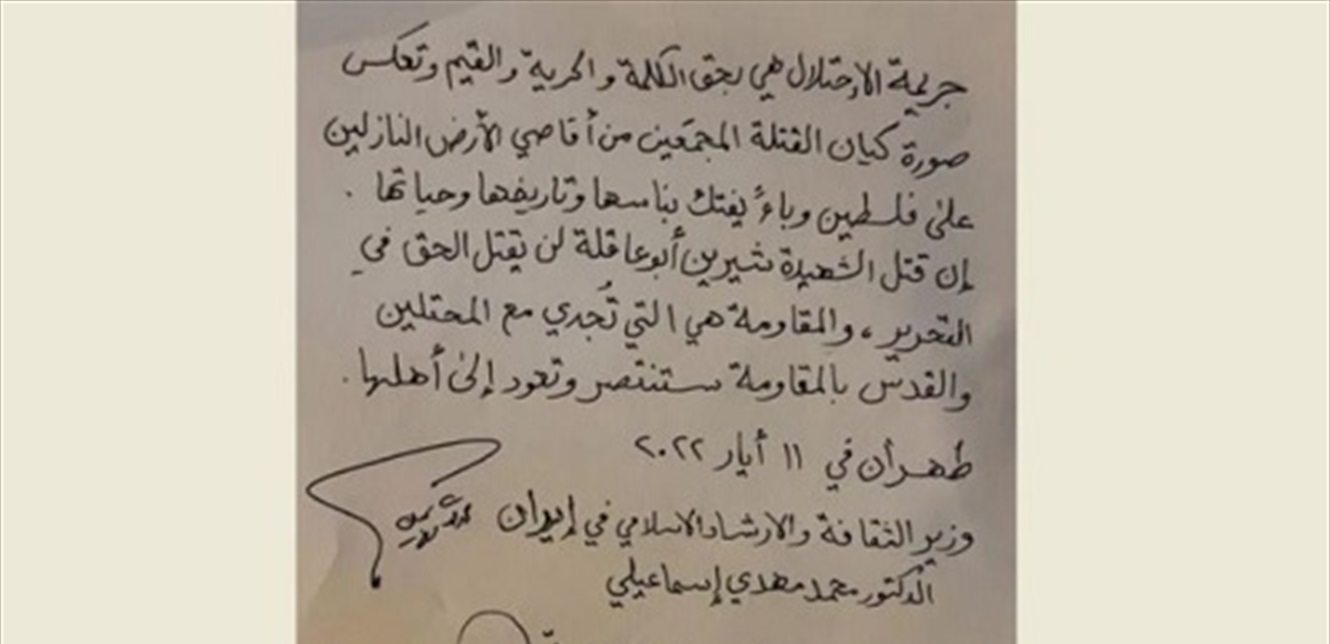 جريمة الإحتلال هي بحق الكلمة والحرية والقيم وتعكس
صورة كيان القتلة المجمّعين من أقاصي الأرض النازلين
على فلسطين وباءً يفتك بناسها وتاريخها وحياتها .
إن قتل الشهيدة شيرين أبو عاقلة لن يقتل الحق في
التحرير، والمقاومة هي التي تُجدي مع المحتلين
والقدس بالمقاومة ستنتصر وتعود إلى أهلها .
طهران في ١١ أيار ٢٠٢٢
وزير الثقافة والارشاد الاسلامي في إيران
الدكتور محمد مهدي إسماعيلي